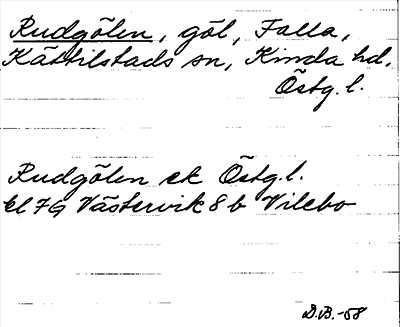 Rudgölen, göl, Falla,
Kättilstads sn, Kinda hd,
Östg. l.
Rudgölen ek Östg. l.
bl 7G Västervik 8 b Vilebo
D.B. -58